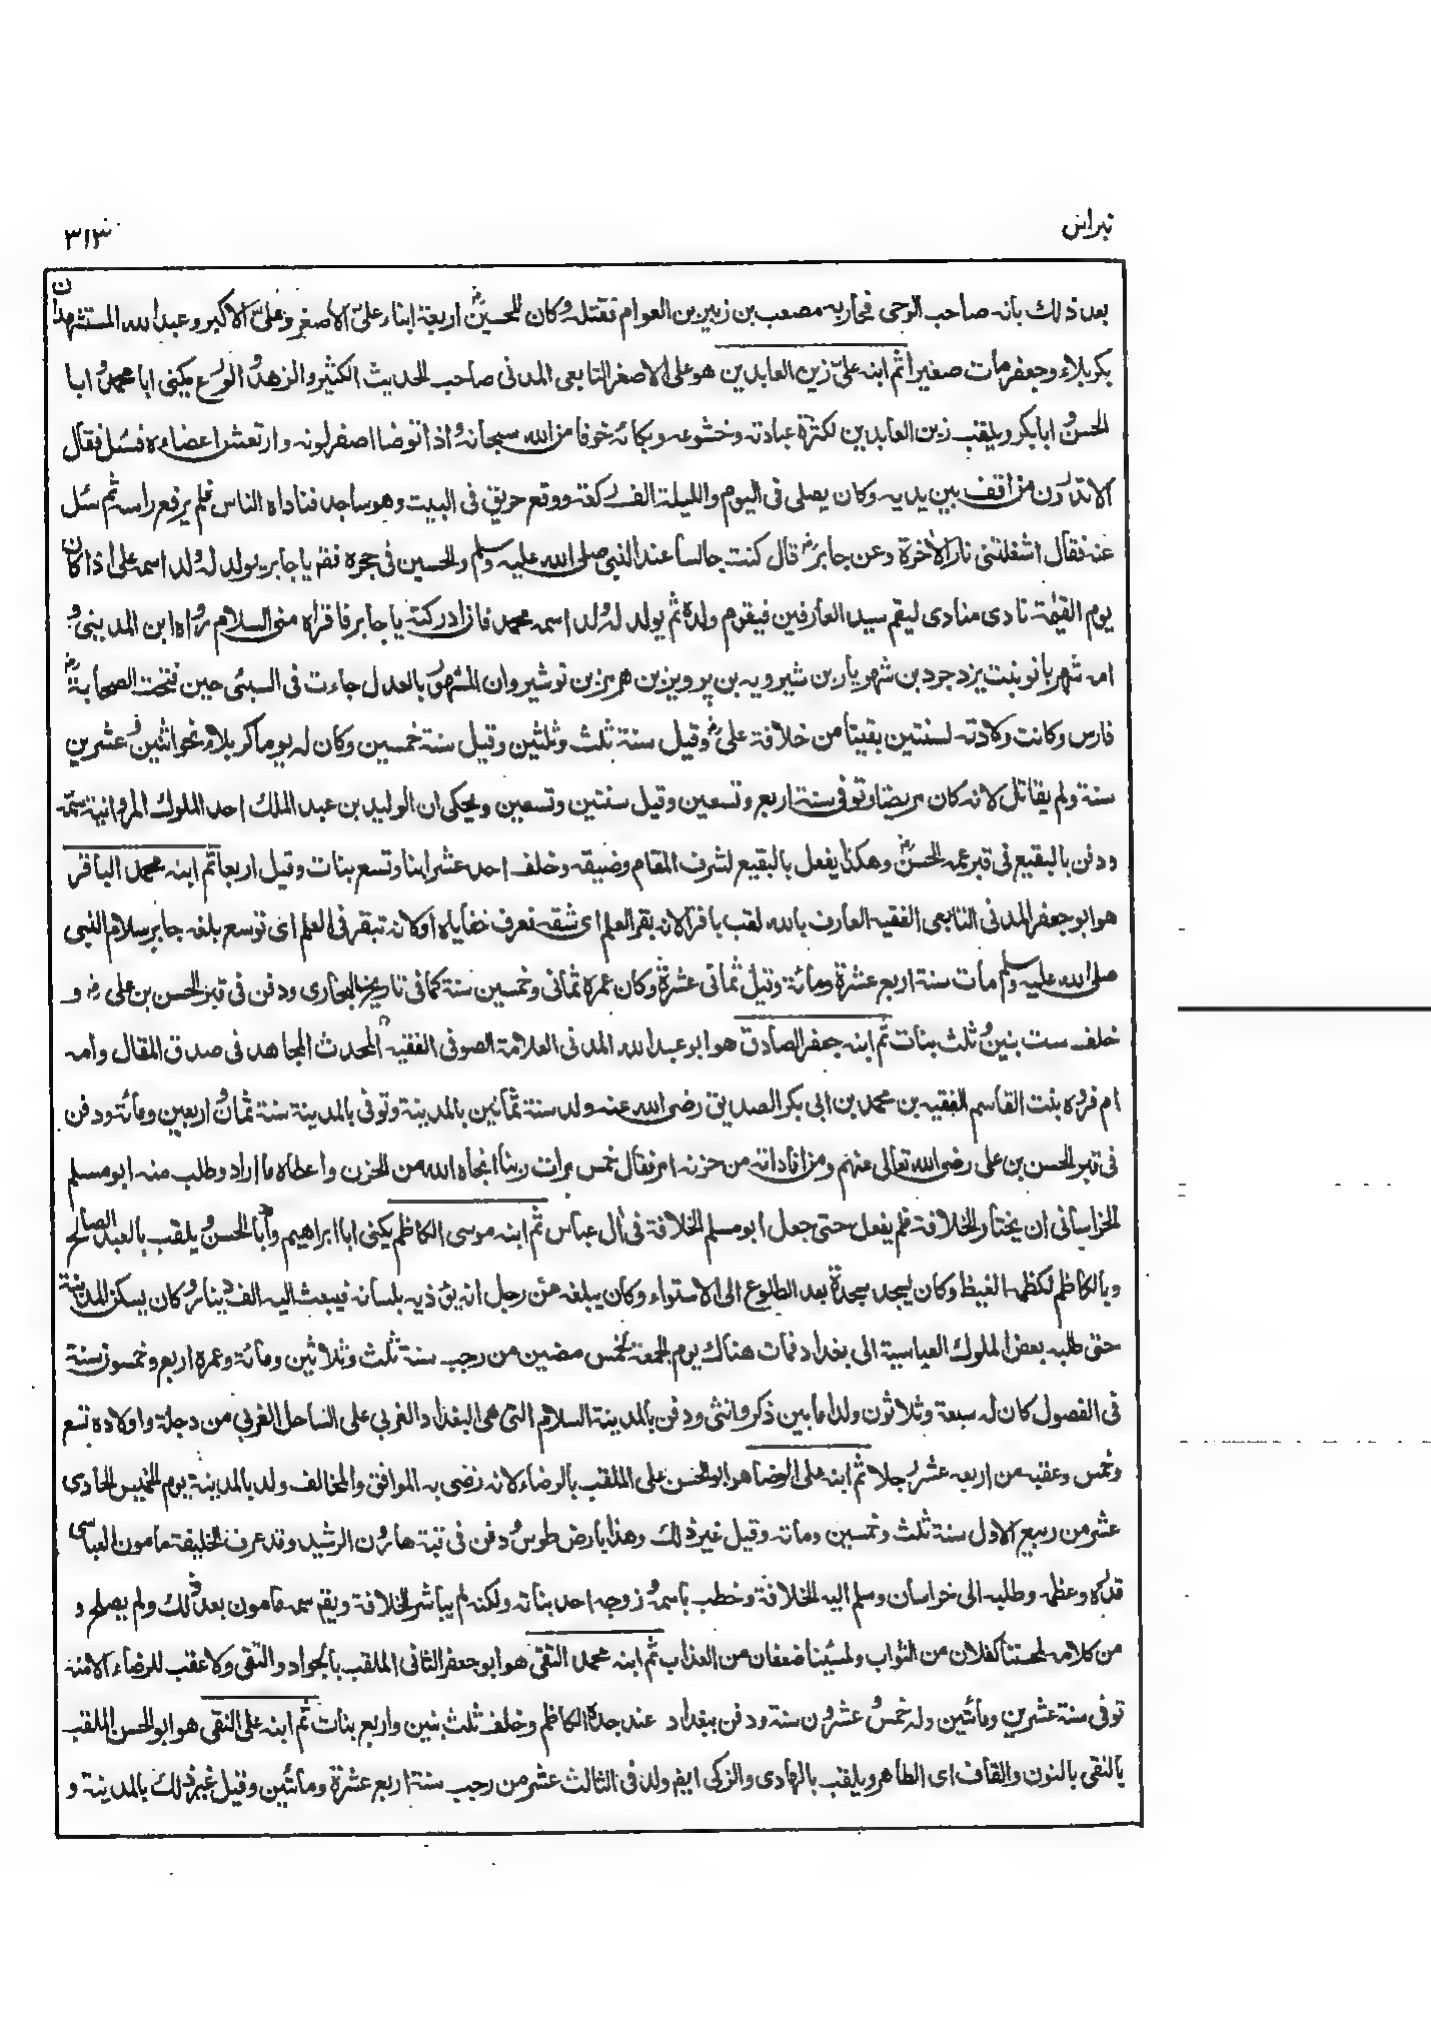 نبراس
٣١٣
بعد ذلك بانه صاحب الوحى فحاربه مصعب بن زبير بن العوام فقتله وكان للحسينؓ اربعة ابناء علىّ الاصغر وعلىّ الاكبر وعبد الله المستشهدان
بكربلاء وجعفر مات صغيرا ثم ابنه علىّ زين العابدين هو على الاصغر التابعى المدنى صاحب الحديث الكثير والزهد والورع يكنى ابا محمد وابا
الحسن وابا بكر ويلقب زين العابدين لكثرة عبادته وخشوعه وبكائه خوفا من الله سبحانه واذا توضا اصفر لونه وارتعش اعضاءه فسئل فقال
الا تدرون من اقف بين يديه وكان يصلى فى اليوم والليلة الف ركعة ووقع حريق فى البيت وهو ساجد فناداه الناس فلم يرفع راسه ثم سئل
عنه فقال اشغلتنى نار الآخرة وعن جابرؓ قال كنت جالسا عند النبى صلى الله عليه وسلم والحسين فى حجره فقم يا جابر يولد له ولد اسمه على اذا كان
يوم القيٰمة نادى منادى ليقم سيد العارفين فيقوم ولده ثم يولد له ولد اسمه محمد فان ادركته يا جابر فاقراه منى السلام رواه ابن المدينى و
امه شهربانو بنت يزدجرد بن شهريار بن شيرويه بن پرويز بن هرمز بن نوشيروان المشهور بالعدل جاءت فى السبئ حين فتحت الصحابةؓ
فارس وكانت ولادته لسنتين بقيتا من خلافة علىؓ وقيل سنة ثلث وثلثين وقيل سنة خمسين وكان له يوم كربلاء نحو اثنين وعشرين
سنة ولم يقاتل لانه كان مريضا وتوفى سنة اربع وتسعين وقيل سنتين وتسعين ويحكى ان الوليد بن عبد الملك احد الملوك المروانية سمّه
ودفن بالبقيع فى قبر عمه الحسنؓ وهكذا يفعل بالبقيع لشرف المقام وضيقه وخلف احد عشر ابنا وتسع بنات وقيل اربعا ثم ابنه محمد الباقر
هو ابو جعفر المدنى التابعى الفقيه العارف بالله لقب باقرا لانه بقر العلم اى شقه فعرف خفاياه او لانه تبقر فى العلم اى توسع بلغه جابر سلام النبى
صلى الله عليه وسلم مات سنة اربع عشرة ومائة وقيل ثمانى عشرة وكان عمره ثمانى وخمسين سنة كما فى تاريخ البخارى ودفن فى قبر الحسن بن علىؓ و
خلف ست بنين وثلث بنات ثم ابنه جعفر الصادق هو ابو عبد الله المدنى العلامة الصوفى الفقيه المحدث المجاهد فى صدق المقال وامه
ام فروه بنت القاسم الفقيه بن محمد بن ابى بكر الصديق رضى الله عنه ولد سنة ثمانين بالمدينة وتوفى بالمدينة سنة ثمان واربعين ومائة ودفن
فى قبر الحسن بن على رضى الله تعالى عنهم ومن افاداته من حزنه امر فقال خمس مرات ربنا انجاه الله من الحزن واعطاه ما اراد وطلب منه ابو مسلم
الخراسانى ان يختار الخلافة فلم يفعل حتى جعل ابو مسلم الخلافة فى آل عباس ثم ابنه موسى الكاظم يكنى ابا ابراهيم وابا الحسن ويلقب بالعبد الصالح
وبالكاظم لكظمه الغيظ وكان يسجد سجدة بعد الطلوع الى الاستواء وكان يبلغه عن رجل انه يؤذيه بلسانه فيبعث اليه الف دينار وكان يسكن المدينة
حتى طلبه بعض الملوك العباسية الى بغداد فمات هناك يوم الجمعة لخمس مضين من رجب سنة ثلث وثلاثين ومائة وعمره اربع وخمسون سنة
فى الفصول كان له سبعة وثلاثون ولدا ما بين ذكر وانثى ودفن بالمدينة السلام التى هى البغداد الغربى على الساحل الغربى من دجلة واولاده تسع
وخمس وعقبه من اربعه عشر رجلا ثم ابنه على الرضا هو ابو الحسن على الملقب بالرضاء لانه رضى به الموافق والمخالف ولد بالمدينة يوم الخميس الحادى
عشر من ربيع الاول سنة ثلث وخمسين ومائه وقيل غير ذلك وهذا بارض طوس ودفن فى قبة هارون الرشيد وقد عرف الخليفة مامون العباسى
قدره وعظمه وطلبه الى خراسان وسلم اليه الخلافة وخطب باسمه وزوجه احد بناته ولكنه لم يباشر الخلافة ويقم سمه مامون بعد ذلك ولم يصلح و
من كلامه لمحسننا كفلان من الثواب ولمسيئنا ضعفان من العذاب ثم ابنه محمد التقى هو ابو جعفر الثانى الملقب بالجواد والتقى ولا عقب للرضاء الا منه
توفى سنة عشرين ومائتين وله خمس وعشرون سنة ودفن ببغداد عند جده الكاظم وخلف ثلث بنين واربع بنات ثم ابنه على النقى هو ابو الحسن الملقب
بالنقى بالنون والقاف اى الطاهر ويلقب بالهادى والزكى ايضم ولد فى الثالث عشر من رجب سنة اربع عشرة ومائتين وقيل غير ذلك بالمدينة و